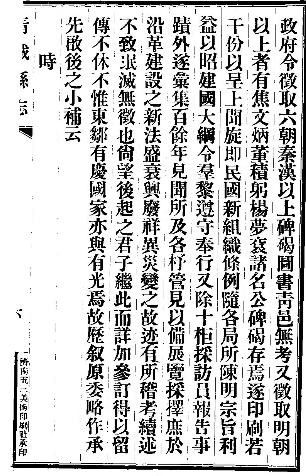 政府令徵取六朝秦漢以上碑碣圖書青邑無考又徵取明朝
以上者有焦文炳董積躬楊夢袞諸名公碑碣存焉遂印刷若
干份以呈上聞旋即民國新組織條例隨各局所陳明宗旨利
益以昭建國大綱令羣黎遵守奉行又除十柜採訪員報告事
蹟外遂彙集百餘年見聞所及各杼管見以備展覽採擇庶於
沿革建設之新法盛衰興廢祥異災變之故迹有所稽考續述
不致泯滅無徵也尙望後起之君子繼此而詳加參訂得以留
傳不休不惟東鄒有慶國家亦與有光焉故歷叙原委略作承
先啟後之小補云
時
青城縣志
濟南五三美術印刷社承印